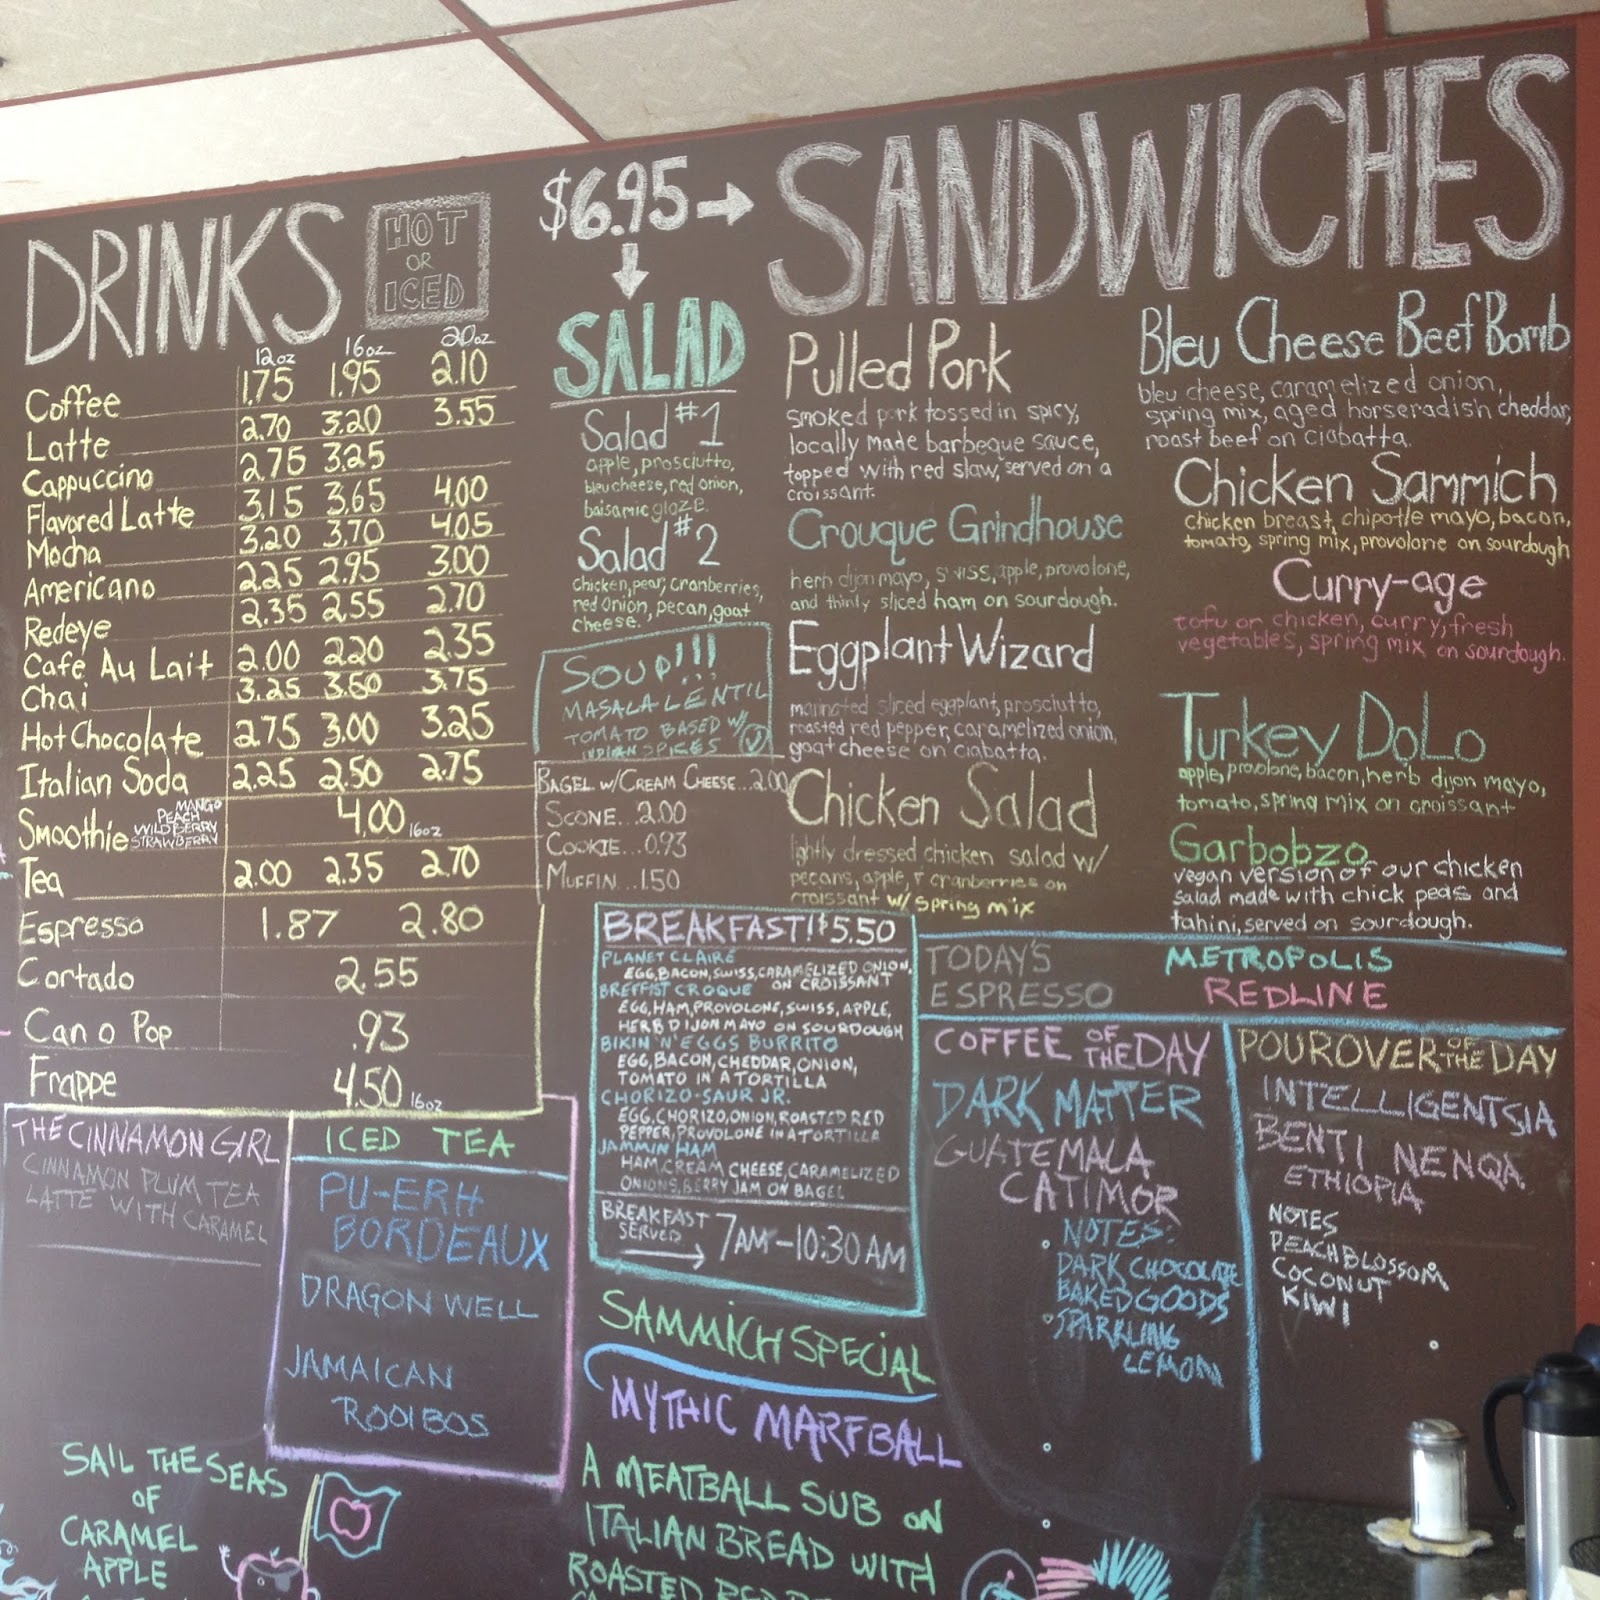 DRINKS
HOT
OR
ICED
12oz 16oz 20oz
Coffee 1.75 1.95 2.10
Latte 2.70 3.20 3.55
Cappuccino 2.75 3.25
Flavored Latte 3.15 3.65 4.00
Mocha 3.20 3.70 4.05
Americano 2.25 2.95 3.00
Redeye 2.35 2.55 2.70
Café Au Lait 2.00 2.20 2.35
Chai 3.25 3.60 3.75
Hot Chocolate 2.75 3.00 3.25
Italian Soda 2.25 2.50 2.75
Smoothie MANGO PEACH WILDBERRY STRAWBERRY 4.00 16oz
Tea 2.00 2.35 2.70
Espresso 1.87 2.80
Cortado 2.55
Can o Pop .93
Frappe 4.50 16oz
THE CINNAMON GIRL
CINNAMON PLUM TEA
LATTE WITH CARAMEL
ICED TEA
PU-ERH
BORDEAUX
DRAGON WELL
JAMAICAN
ROOIBOS
SAIL THE SEAS
OF
CARAMEL
APPLE
$6.95
SALAD
Salad #1
apple, prosciutto,
bleu cheese, red onion,
balsamic glaze.
Salad #2
chicken, pear, cranberries,
red onion, pecan, goat
cheese.
SOUP!!!
MASALA LENTIL
TOMATO BASED W/
INDIAN SPICES V
BAGEL W/CREAM CHEESE...2.00
SCONE...2.00
COOKIE...0.93
MUFFIN...1.50
BREAKFAST! $5.50
PLANET CLAIRE
EGG, BACON, SWISS, CARAMELIZED ONION,
ON CROISSANT
BREFFIST CROQUE
EGG, HAM, PROVOLONE, SWISS, APPLE,
HERB DIJON MAYO ON SOURDOUGH
BIKIN 'N' EGGS BURRITO
EGG, BACON, CHEDDAR, ONION,
TOMATO IN A TORTILLA
CHORIZO-SAUR JR.
EGG, CHORIZO, ONION, ROASTED RED
PEPPER, PROVOLONE IN A TORTILLA
JAMMIN HAM
HAM, CREAM CHEESE, CARAMELIZED
ONIONS, BERRY JAM ON BAGEL
BREAKFAST
SERVED
7AM-10:30AM
SAMMICH SPECIAL
MYTHIC MARFBALL
A MEATBALL SUB ON
ITALIAN BREAD WITH
ROASTED RED
SANDWICHES
Pulled Pork
smoked pork tossed in spicy,
locally made barbeque sauce,
topped with red slaw, served on a
croissant.
Crouque Grindhouse
herb dijon mayo, swiss, apple, provolone,
and thinly sliced ham on sourdough.
Eggplant Wizard
marinated sliced eggplant, prosciutto,
roasted red pepper, caramelized onion,
goat cheese on ciabatta.
Chicken Salad
lightly dressed chicken salad w/
pecans, apple, & cranberries on
croissant w/ spring mix
Bleu Cheese Beef Bomb
bleu cheese, caramelized onion,
spring mix, aged horseradish cheddar,
roast beef on ciabatta.
Chicken Sammich
chicken breast, chipotle mayo, bacon,
tomato, spring mix, provolone on sourdough
Curry-age
tofu or chicken, curry, fresh
vegetables, spring mix on sourdough.
Turkey DoLo
apple, provolone, bacon, herb dijon mayo,
tomato, spring mix on croissant
Garbobzo
vegan version of our chicken
salad made with chick peas and
tahini, served on sourdough.
TODAY'S
ESPRESSO
METROPOLIS
REDLINE
COFFEE OF THE DAY
DARK MATTER
GUATEMALA
CATIMOR
NOTES:
DARK CHOCOLATE
BAKED GOODS
SPARKLING
LEMON
POUROVER OF THE DAY
INTELLIGENTSIA
BENTI NENQA
ETHIOPIA
NOTES
PEACH BLOSSOM
COCONUT
KIWI